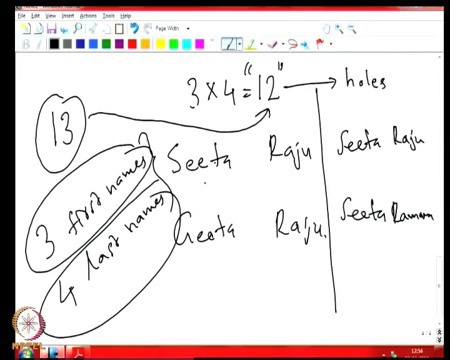 File Edit View Insert Actions Tools Help
Page Width
3 × 4 = "12" → holes
13
3 first names
4 last names
Seeta Raju
Geeta Raju.
Seeta Raju
Seeta Ramana
12:54